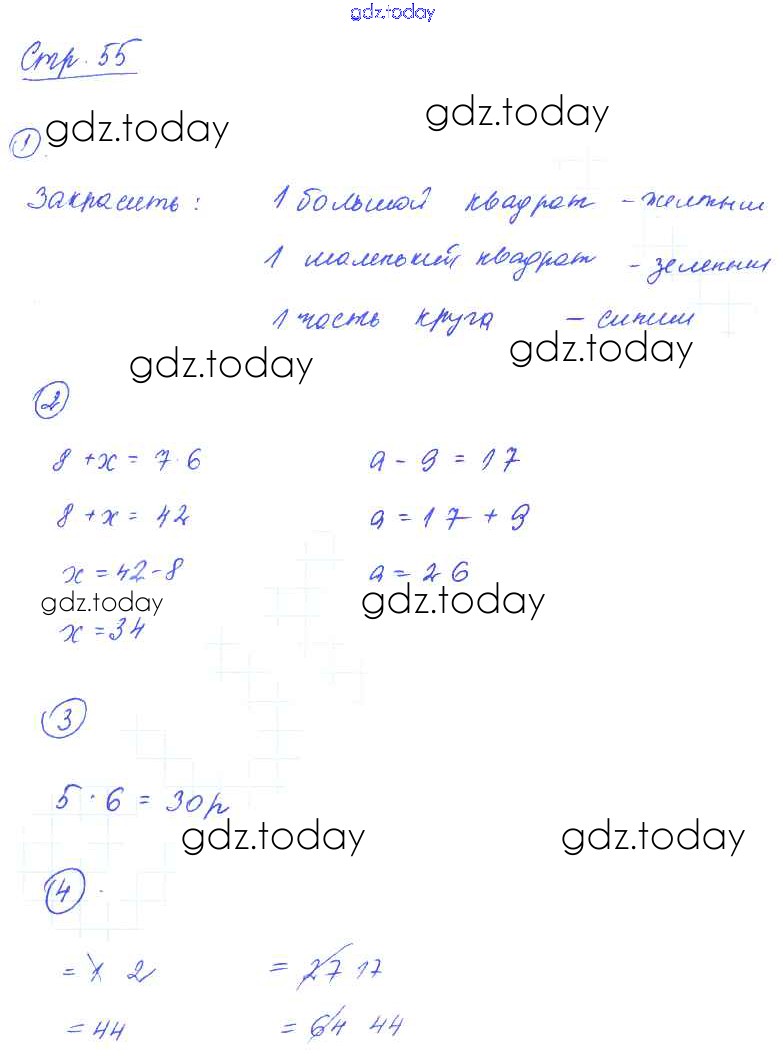 gdz.today
Стр. 55
gdz.today
gdz.today
1
Закрасить: 1 большой квадрат - желтым
1 маленький квадрат - зеленым
1 часть круга - синим
gdz.today
gdz.today
2
8 + x = 7 · 6
a - 9 = 17
8 + x = 42
a = 17 + 9
x = 42 - 8
a = 26
gdz.today
gdz.today
x = 34
3
5 · 6 = 30 р
gdz.today
gdz.today
4
= 1 2
= 27 17
= 44
= 64 44